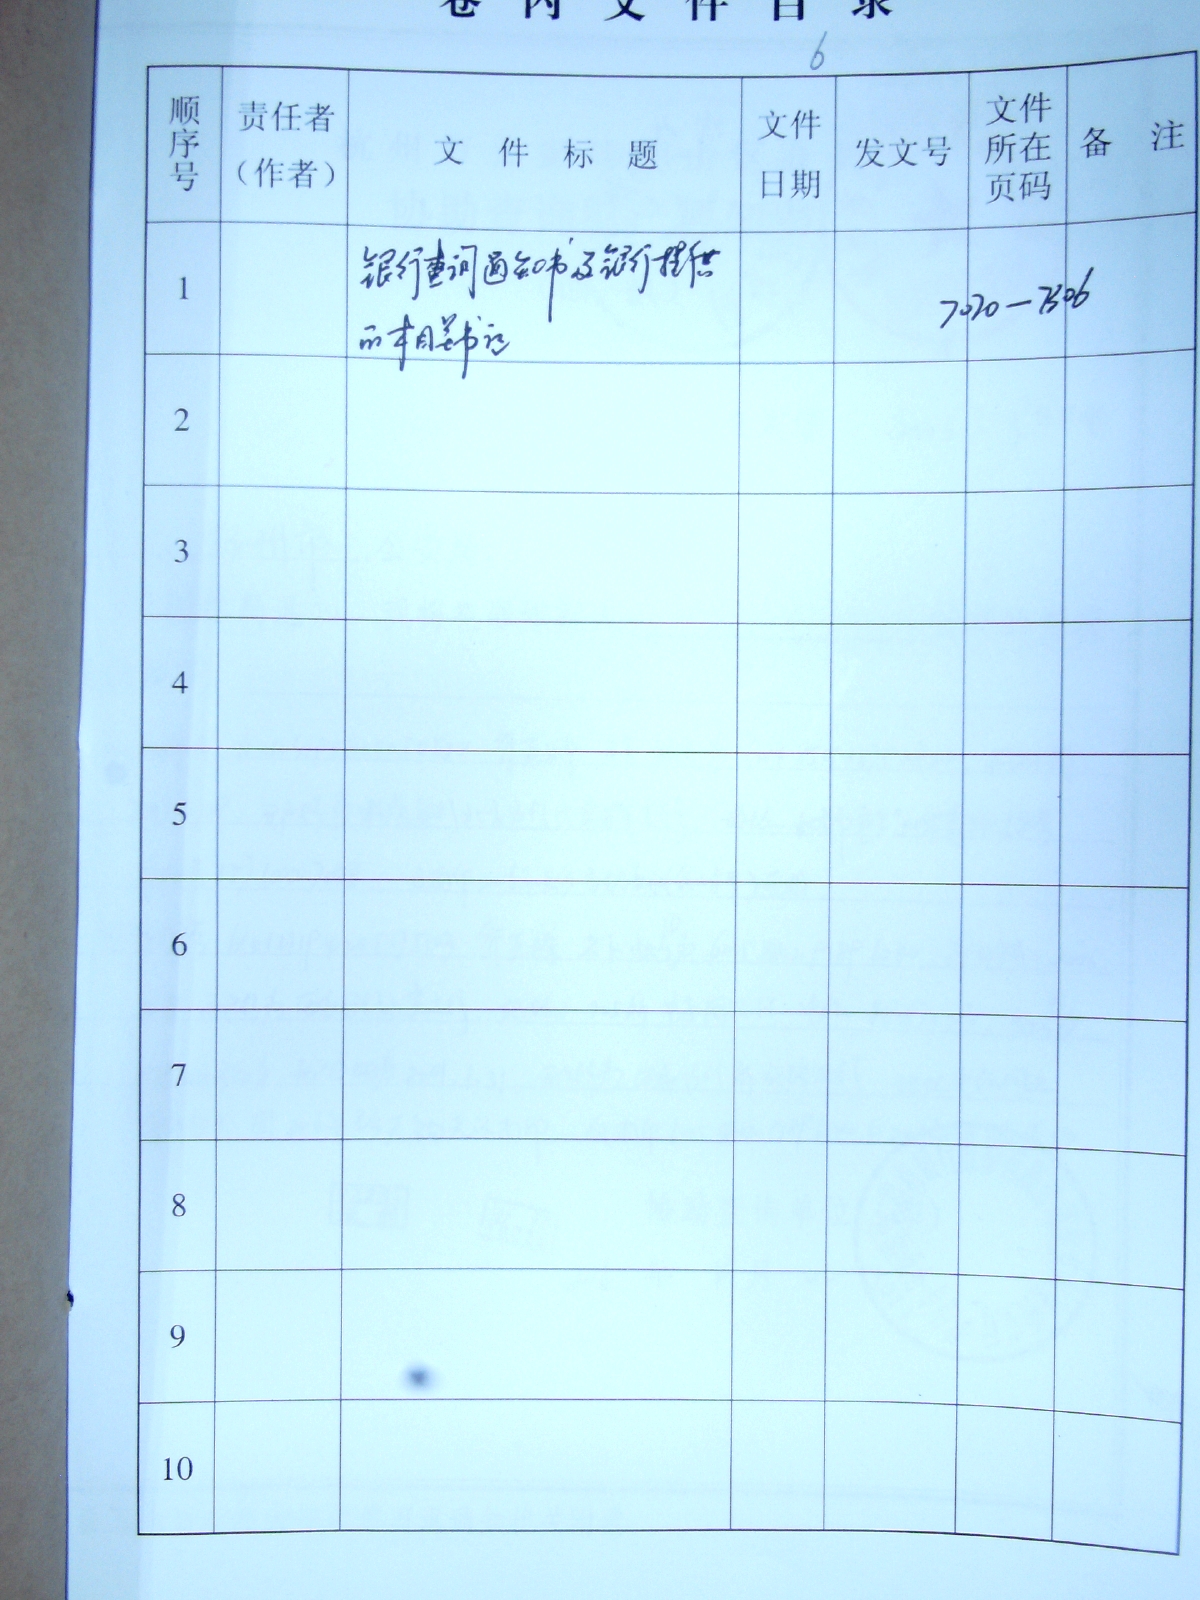 卷内文件目录
6
顺序号 责任者（作者） 文件标题 文件日期 发文号 文件所在页码 备注
1 银行查询通知书及银行提供 7020—7306
的相关书证
2
3
4
5
6
7
8
9
10